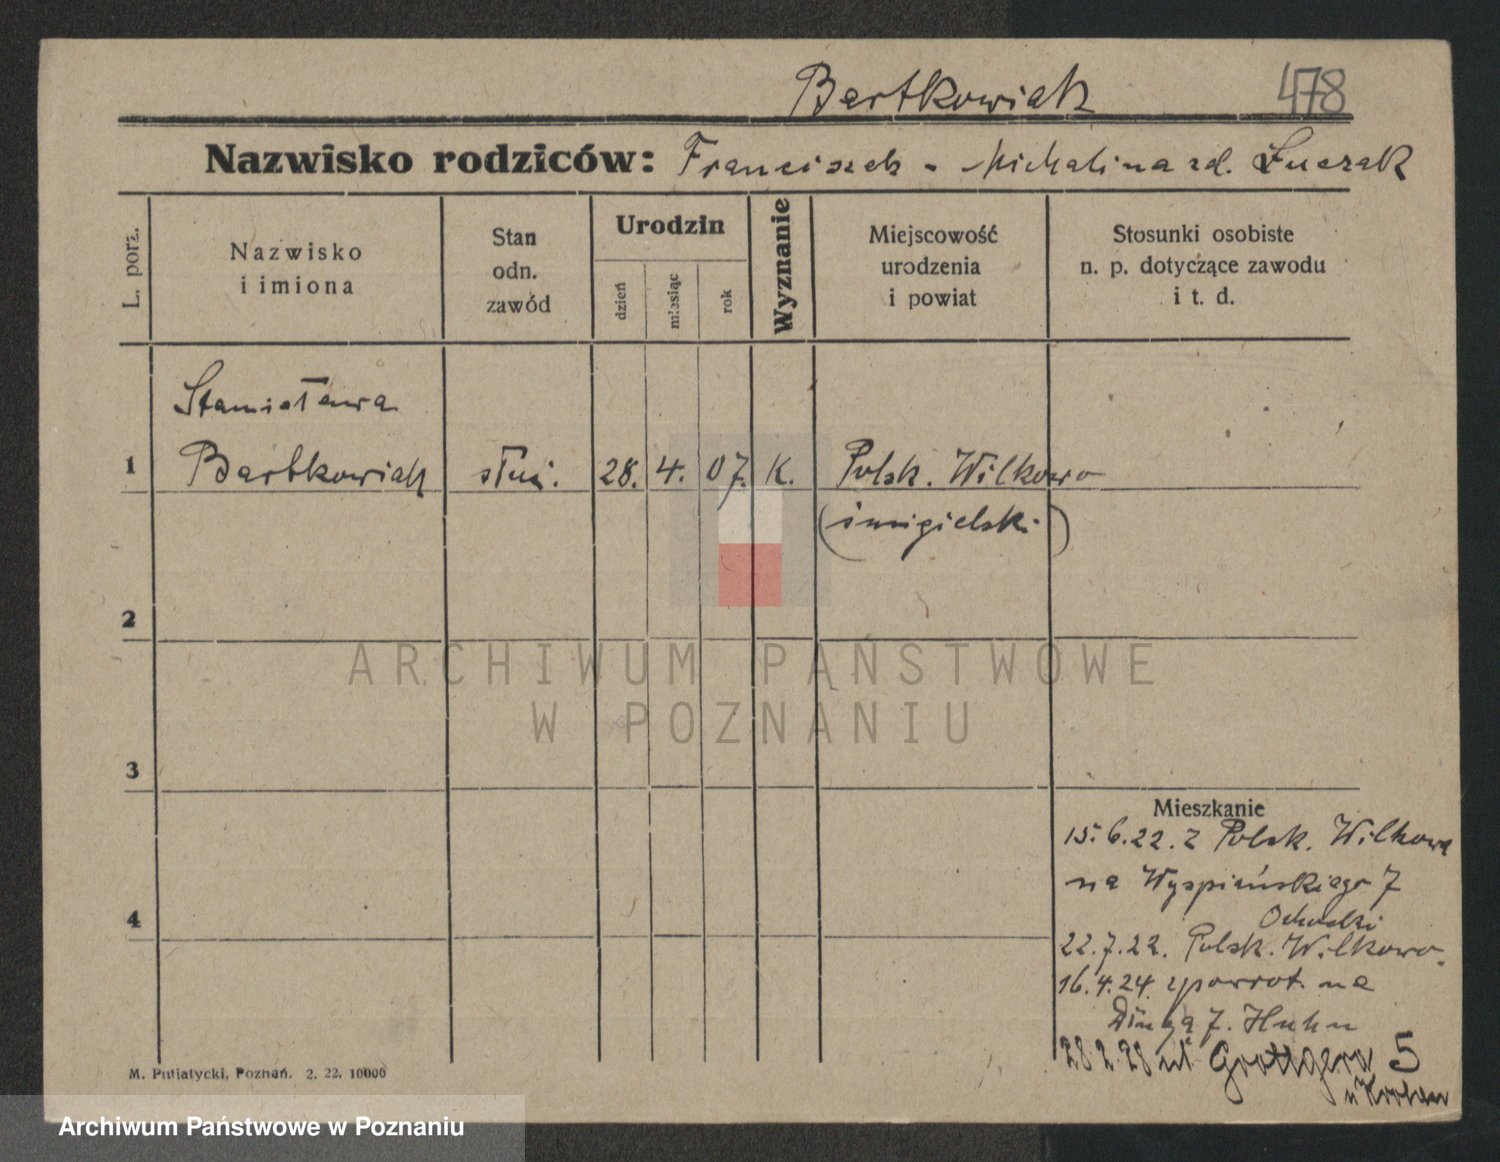 Bartkowiak 478
Nazwisko rodziców: Franciszek - Michalina zd. Łuczak
L. porz.
Nazwisko
i imiona
Stan
odn.
zawód
Urodzin
dzień
miesiąc
rok
Wyznanie
Miejscowość
urodzenia
i powiat
Stosunki osobiste
n. p. dotyczące zawodu
i t. d.
Stanisława
1 Bartkowiak służ. 28. 4. 07. K. Polsk. Wilkowo
(śmigielski)
2
ARCHIWUM PAŃSTWOWE
W POZNANIU
3
Mieszkanie
15.6.22. z Polsk. Wilkowa
na Wyspiańskiego 7
4
22.7.22. Polsk. Wilkowo.
16.4.24. zpowrot. na
Długą 7. Huhn
28.2.28 ul. Grottgera 5
M. Putiatycki, Poznań. 2. 22. 10000
Archiwum Państwowe w Poznaniu